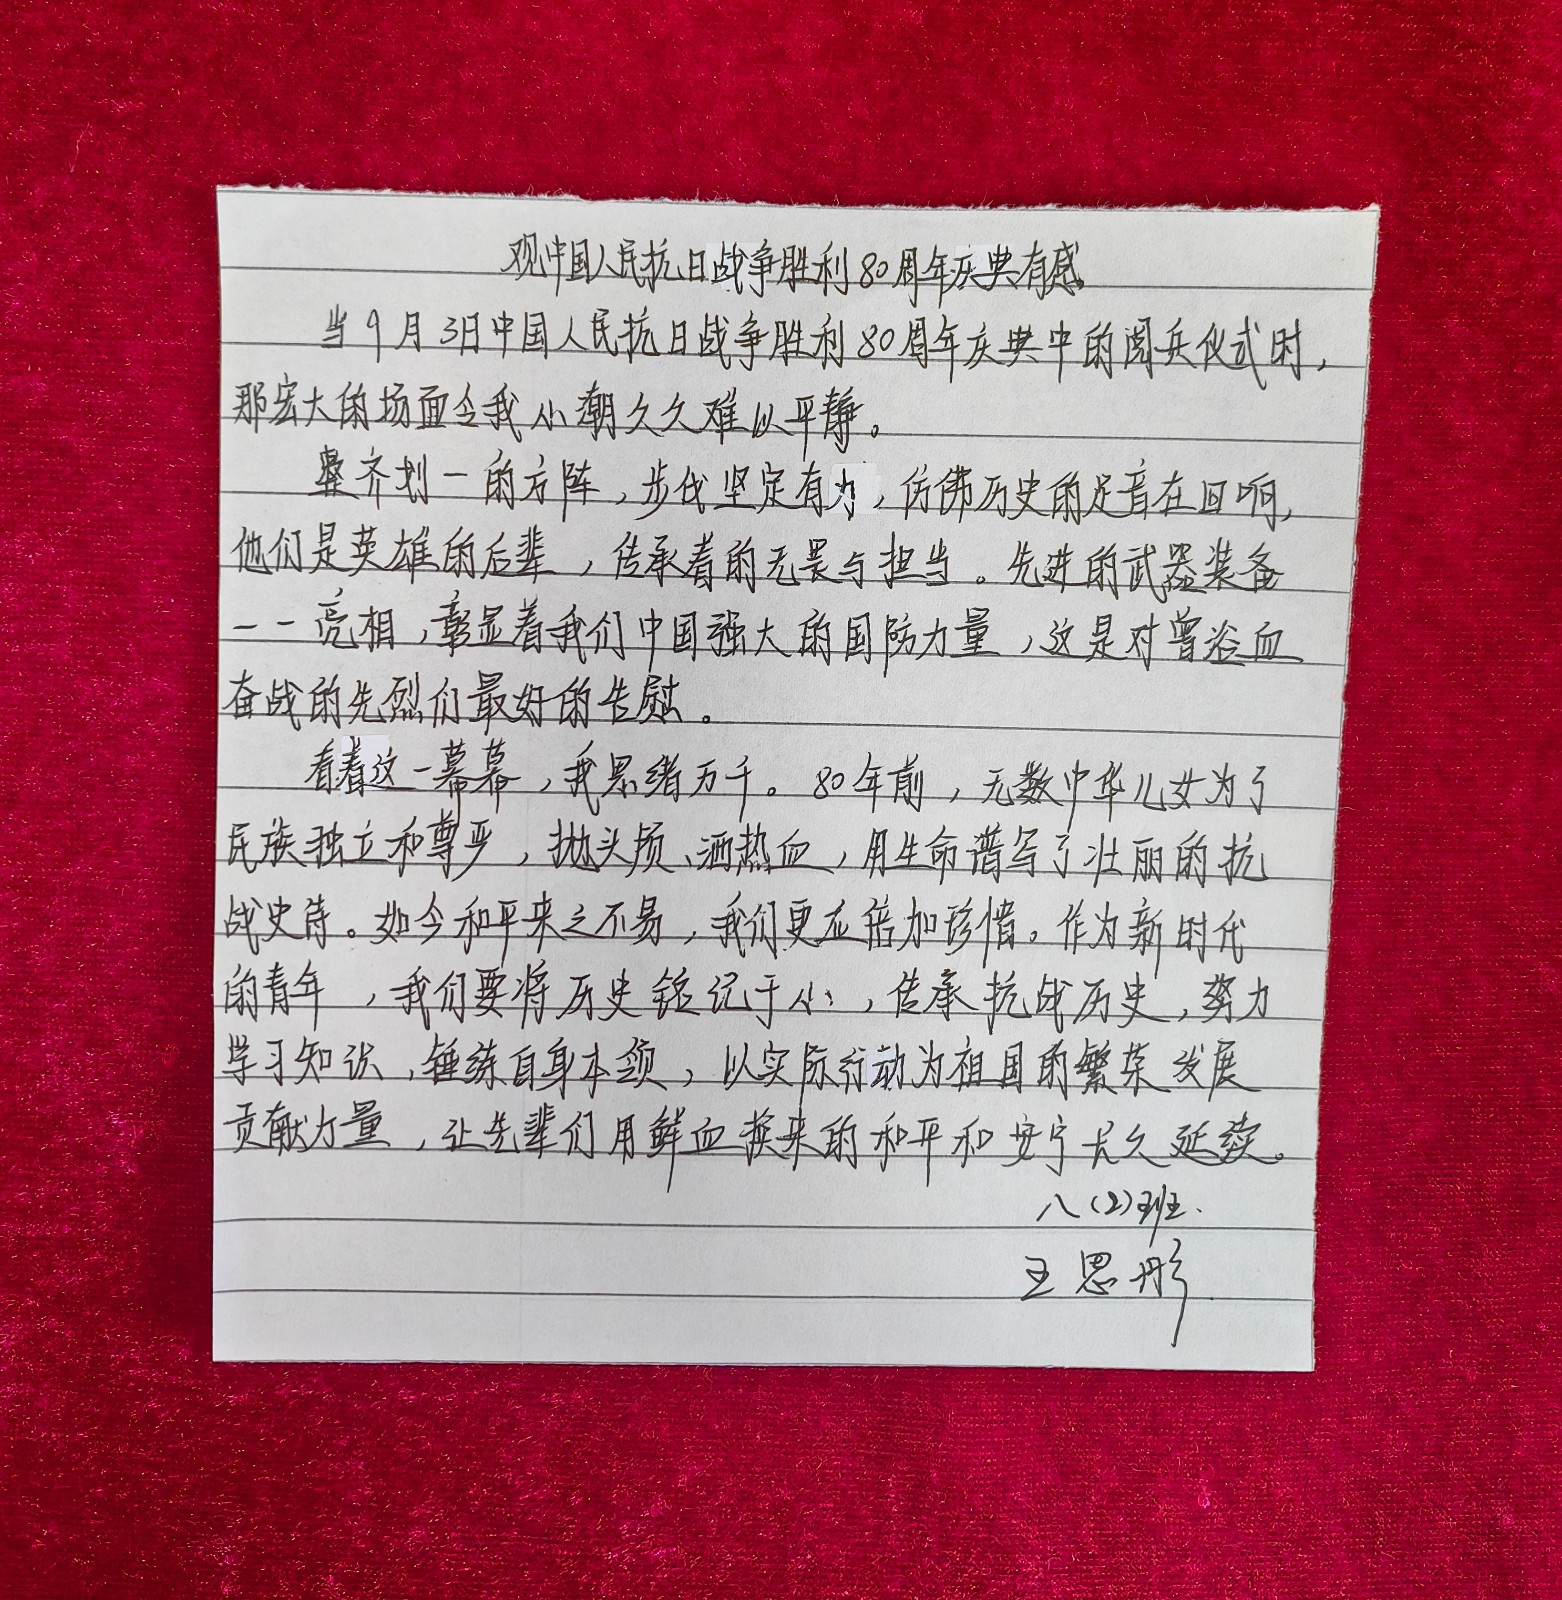 观中国人民抗日战争胜利80周年庆典有感
当9月3日中国人民抗日战争胜利80周年庆典中的阅兵仪式时，
那宏大的场面令我心潮久久难以平静。
整齐划一的方阵，步伐坚定有力，仿佛历史的足音在回响，
他们是英雄的后辈，传承着的无畏与担当。先进的武器装备
一一亮相，彰显着我们中国强大的国防力量，这是对曾浴血
奋战的先烈们最好的告慰。
看着这一幕幕，我思绪万千。80年前，无数中华儿女为了
民族独立和尊严，抛头颅、洒热血，用生命谱写了壮丽的抗
战史诗。如今和平来之不易，我们更应倍加珍惜。作为新时代
的青年，我们要将历史铭记于心，传承抗战历史，努力
学习知识，锤练自身本领，以实际行动为祖国的繁荣发展
贡献力量，让先辈们用鲜血换来的和平和安宁长久延续。
八(2)班.
王思彤